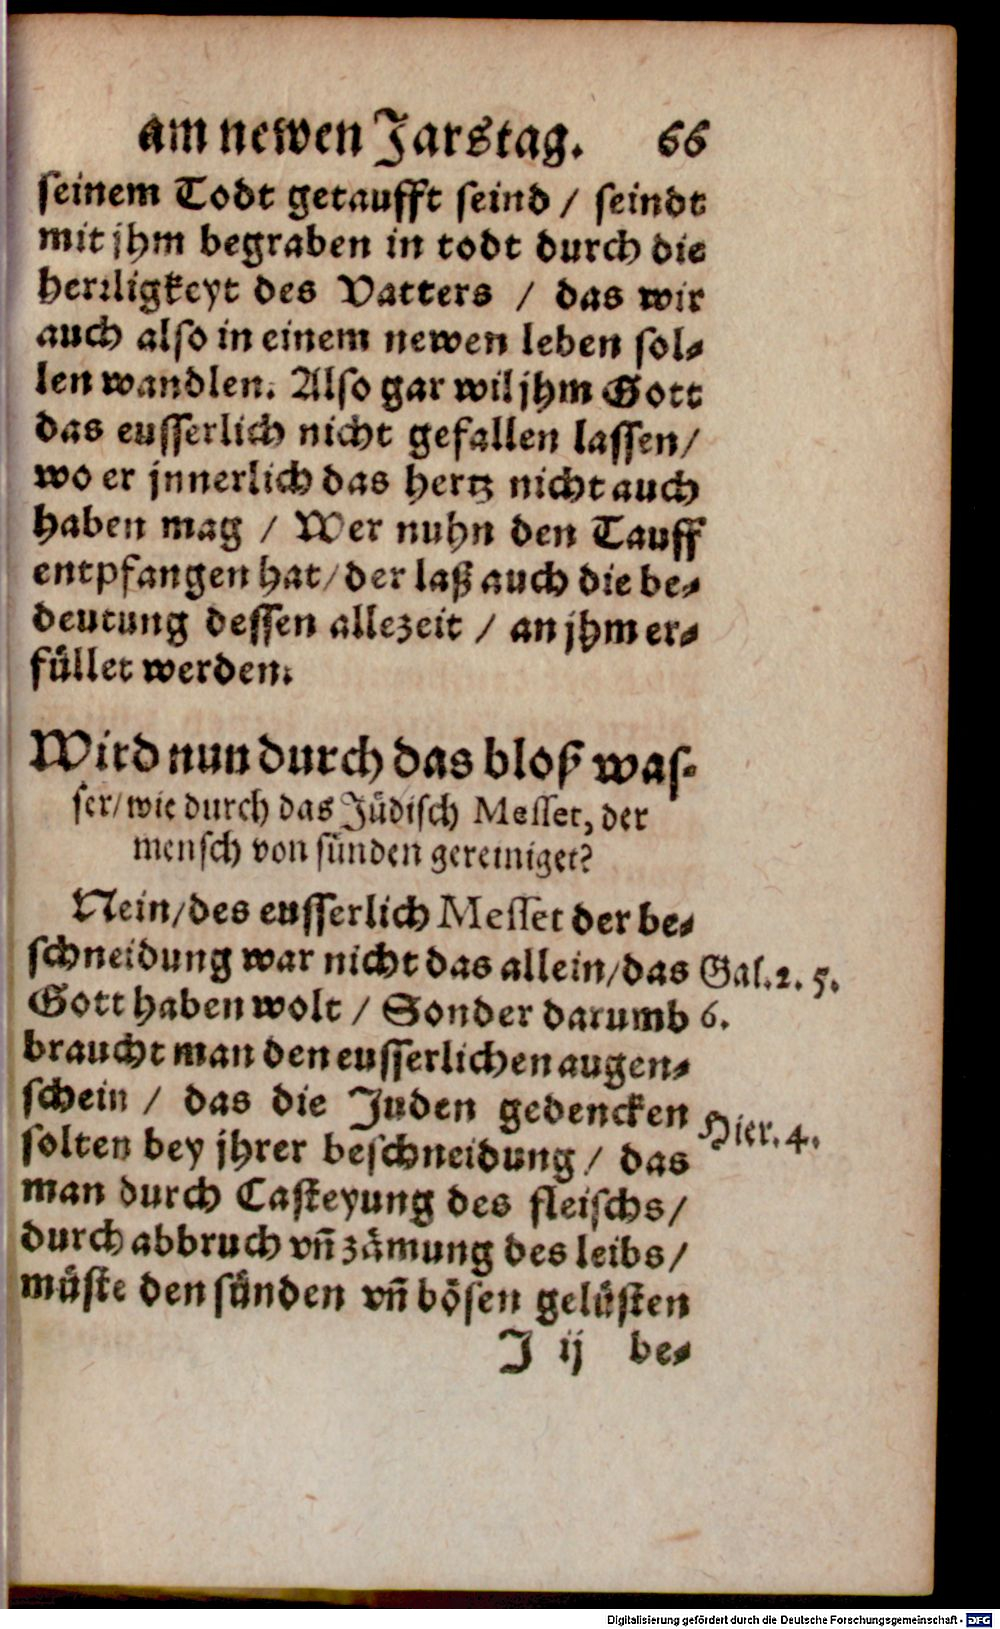 am newen Jarstag. 66
seinem Todt getaufft seind / seindt
mit jhm begraben in todt durch die
herrligkeyt des Vatters / das wir
auch also in einem newen leben sol-
len wandlen. Also gar wil jhm Gott
das eusserlich nicht gefallen lassen/
wo er jnnerlich das hertz nicht auch
haben mag / Wer nuhn den Tauff
entpfangen hat/der laß auch die be-
deutung dessen allezeit / an jhm er-
füllet werden.
Wird nun durch das bloß was-
ser/wie durch das Jüdisch Messer, der
mensch von sünden gereiniget?
Nein/des eusserlich Messer der be-
schneidung war nicht das allein/das Gal.2. 5.
Gott haben wolt / Sonder darumb 6.
braucht man den eusserlichen augen-
schein / das die Juden gedencken Hier. 4.
solten bey jhrer beschneidung / das
man durch Casteyung des fleischs/
durch abbruch vñ zämung des leibs/
müste den sünden vñ bösen gelüsten
J ij be-
Digitalisierung gefördert durch die Deutsche Forschungsgemeinschaft - DFG